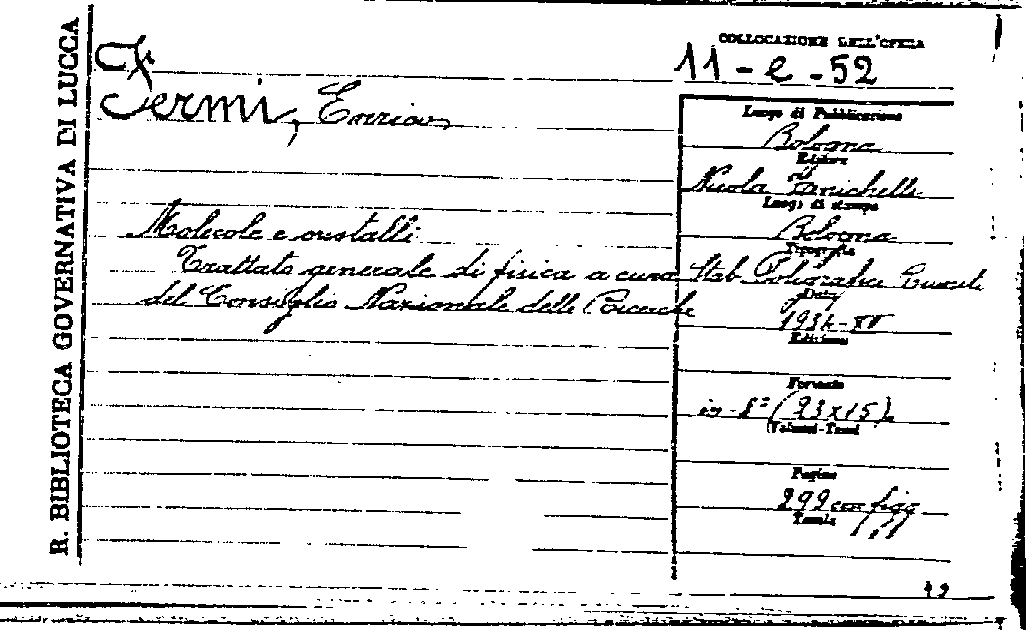 R. BIBLIOTECA GOVERNATIVA DI LUCCA
F
Fermi, Enrico
Molecole e cristalli
Trattato generale di fisica a cura
del Consiglio Nazionale delle Ricerche
COLLOCAZIONE DELL'OPERA
11-e-52
Luogo di Pubblicazione
Bologna
Editore
Nicola Zanichelli
Luogo di stampa
Bologna
Tipografia
Stab Poligrafici
Data
Edizione
Formato
in-8° (23x15)
Volumi-Tomi
Pagine
299 con figg
Tavole